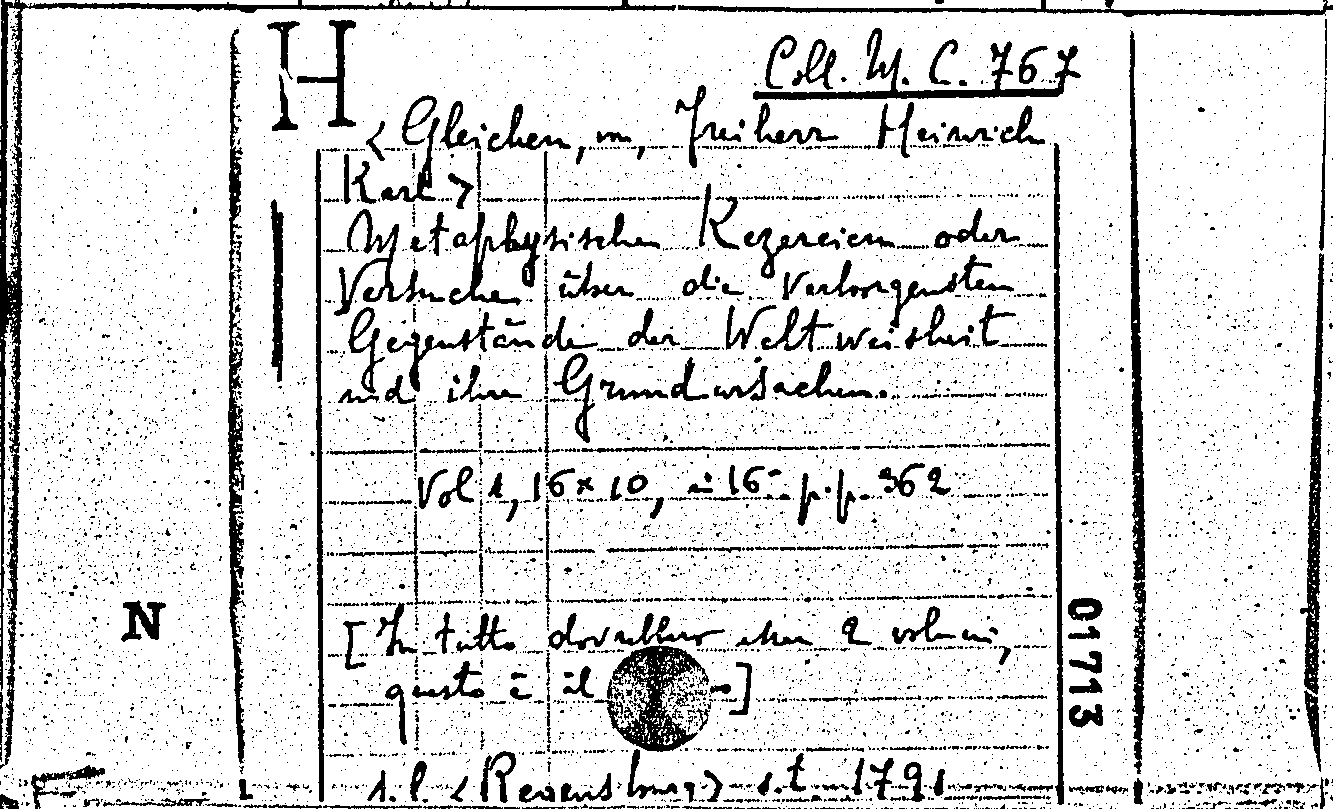 H
Coll. M. C. 767
< Gleichen, von, Freiherr Heinrich
Karl >
Metaphysischen Kezereien oder
Versuche über die verborgensten
Gegenstände der Weltweisheit
und ihre Grundursachen.
Vol 1, 16 x 10, in 16° p.p. 362
[In tutto dovrebbero essere 2 volumi,
questo è il
]
N
01713
s. l. < Regensburg > s. t. 1791